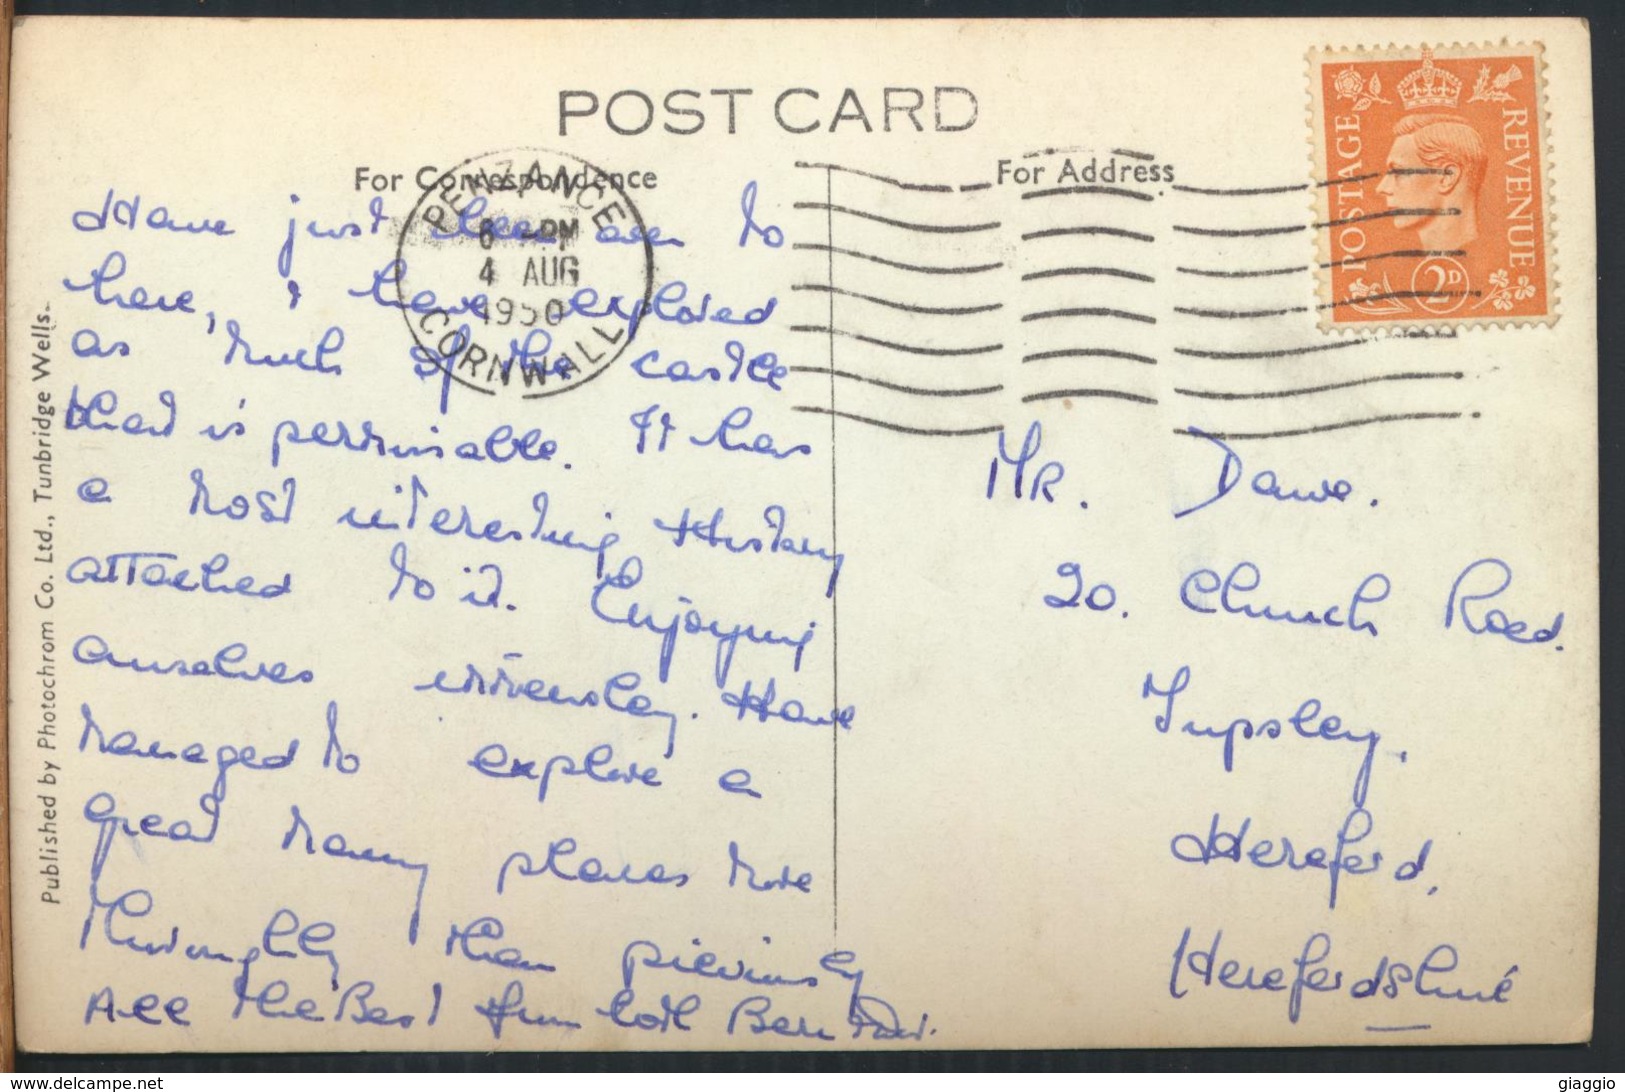 POST CARD
For Correspondence
For Address
PENZANCE
6 - PM
4 AUG
1950
CORNWALL
POSTAGE
REVENUE
2D
Have just been over to
here, & have explored
as much of the castle
that is permisable. It has
a most interesting History
attached to it. Enjoying
ourselves immensley. Have
managed to explore a
great many places more
thoroughly than previously
All the Best from both
Mr. Dawe.
20. Church Road.
Tupsley.
Hereford.
Herefordshire
Published by Photochrom Co. Ltd., Tunbridge Wells.
giaggio